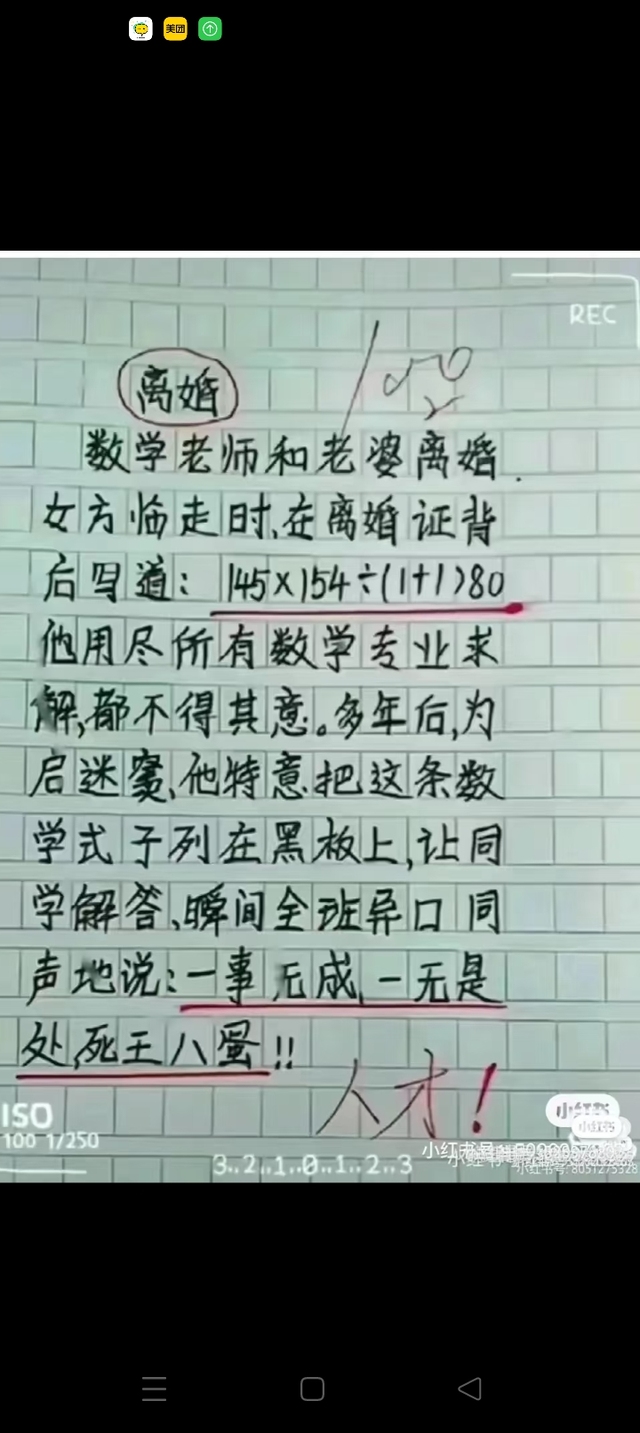 美团
REC
离婚
100
数学老师和老婆离婚.
女方临走时,在离婚证背
后写道: 145×154÷(1+1)80
他用尽所有数学专业求
解,都不得其意。多年后,为
启迷窦,他特意把这条数
学式子列在黑板上,让同
学解答、瞬间全班异口同
声地说:一事无成,一无是
处,死王八蛋!!
人才!
ISO
100 1/250
3..2..1..0..1..2..3
小红书
小红书
小红书号: 8051275328